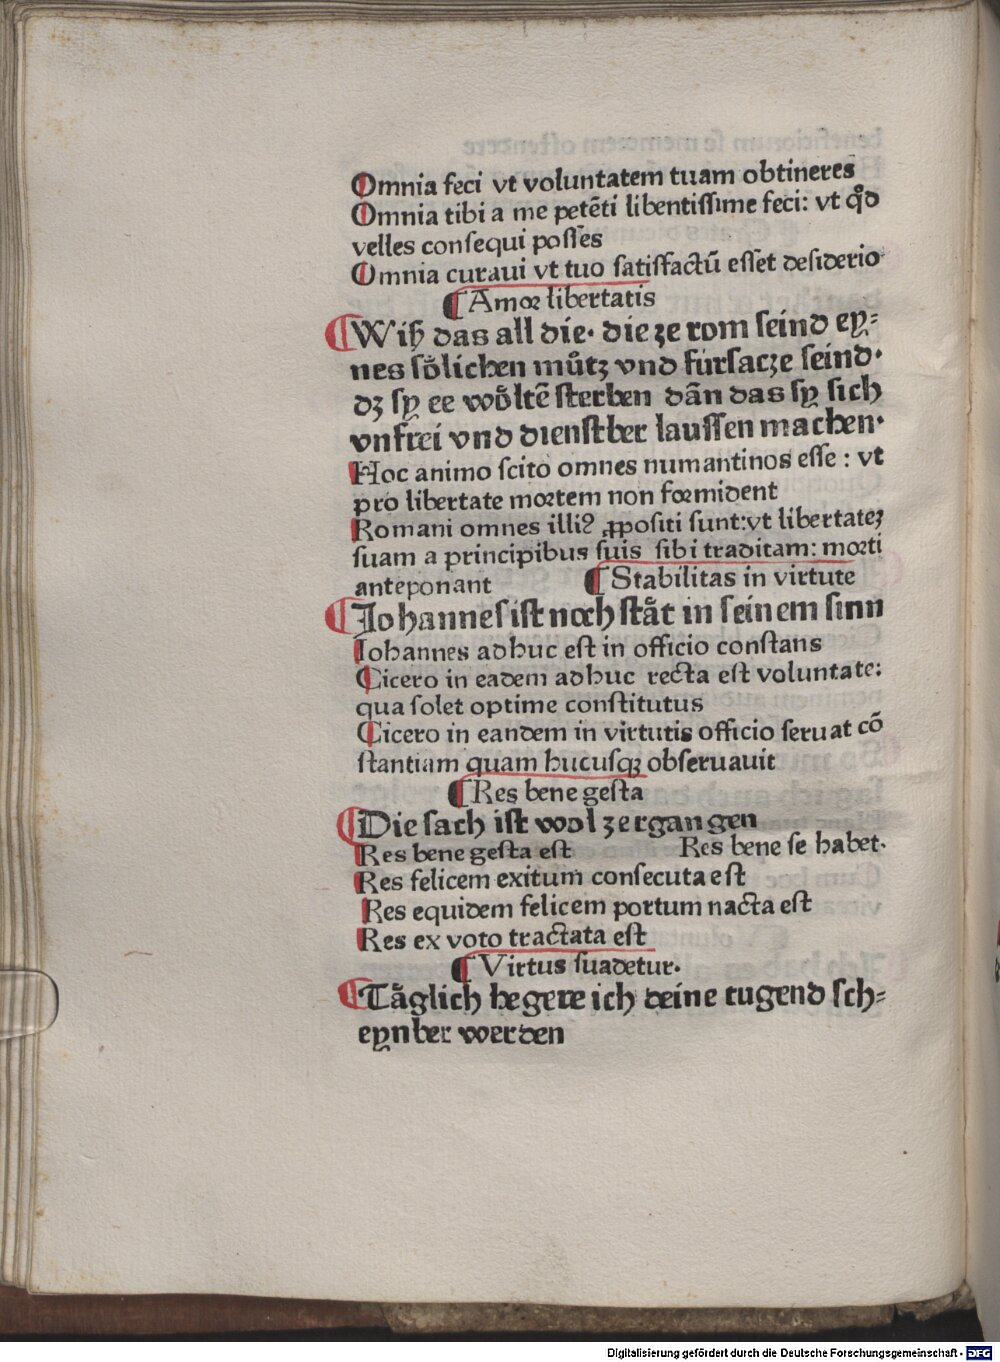 Omnia feci vt voluntatem tuam obtineres
Omnia tibi a me petēti libentissime feci: vt qd̊
velles consequi posses
Omnia curaui vt tuo satisfactū esset desiderio
¶ Amor libertatis
¶ Wiß das all die· die ze rom seind ey⸗
nes soͤlichen muͦtz vnd fürsacze seind·
dz sy ee woͤltē sterben dān das sy sich
vnfrei vnd dienstber laussen machen·
Hoc animo scito omnes numantinos esse : vt
pro libertate mortem non formident
Romani omnes illiꝰ ꝓpositi sunt: vt libertateȝ
suam a principibus suis sibi traditam: morti
anteponant ¶ Stabilitas in virtute
¶ Johannes ist noch staͤt in seinem sinn
Iohannes adhuc est in officio constans
Cicero in eadem adhuc recta est voluntate:
qua solet optime constitutus
Cicero in eandem in virtutis officio seruat cō
stantiam quam hucusqꝫ obseruauit
¶ Res bene gesta
¶ Die sach ist wol zergangen
Res bene gesta est Res bene se habet·
Res felicem exitum consecuta est
Res equidem felicem portum nacta est
Res ex voto tractata est
¶ Virtus suadetur·
¶ Taͤglich begere ich deine tugend sch⸗
eynber werden
Digitalisierung gefördert durch die Deutsche Forschungsgemeinschaft - DFG